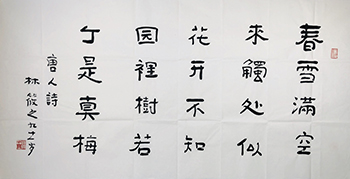 春雪滿空
來觸处似
花开不知
园裡樹若
亇是真梅
唐人詩
林筱之九十一岁